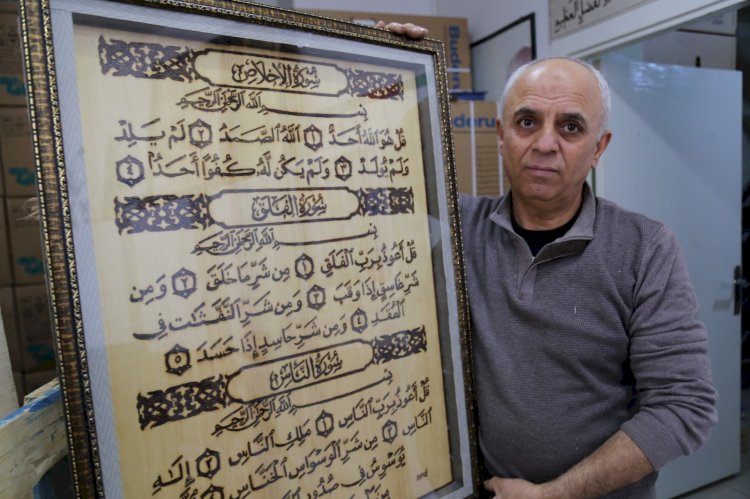 سُورَةُ الإِخْلَاصِ
بِسْمِ اللَّهِ الرَّحْمَٰنِ الرَّحِيمِ
قُلْ هُوَ ٱللَّهُ أَحَدٌ ١ ٱللَّهُ ٱلصَّمَدُ ٢ لَمْ يَلِدْ
وَلَمْ يُولَدْ ٣ وَلَمْ يَكُن لَّهُۥ كُفُوًا أَحَدٌۢ ٤
سُورَةُ الفَلَقِ
بِسْمِ اللَّهِ الرَّحْمَٰنِ الرَّحِيمِ
قُلْ أَعُوذُ بِرَبِّ ٱلْفَلَقِ ١ مِن شَرِّ مَا خَلَقَ ٢ وَمِن
شَرِّ غَاسِقٍ إِذَا وَقَبَ ٣ وَمِن شَرِّ ٱلنَّفَّٰثَٰتِ فِى
ٱلْعُقَدِ ٤ وَمِن شَرِّ حَاسِدٍ إِذَا حَسَدَ ٥
سُورَةُ النَّاسِ
بِسْمِ اللَّهِ الرَّحْمَٰنِ الرَّحِيمِ
قُلْ أَعُوذُ بِرَبِّ ٱلنَّاسِ ١ مَلِكِ ٱلنَّاسِ ٢ إِلَٰهِ
ٱلنَّاسِ ٣ مِن شَرِّ ٱلْوَسْوَاسِ ٱلْخَنَّاسِ
يُوَسْوِسُ فِى صُدُورِ
Bud
derus